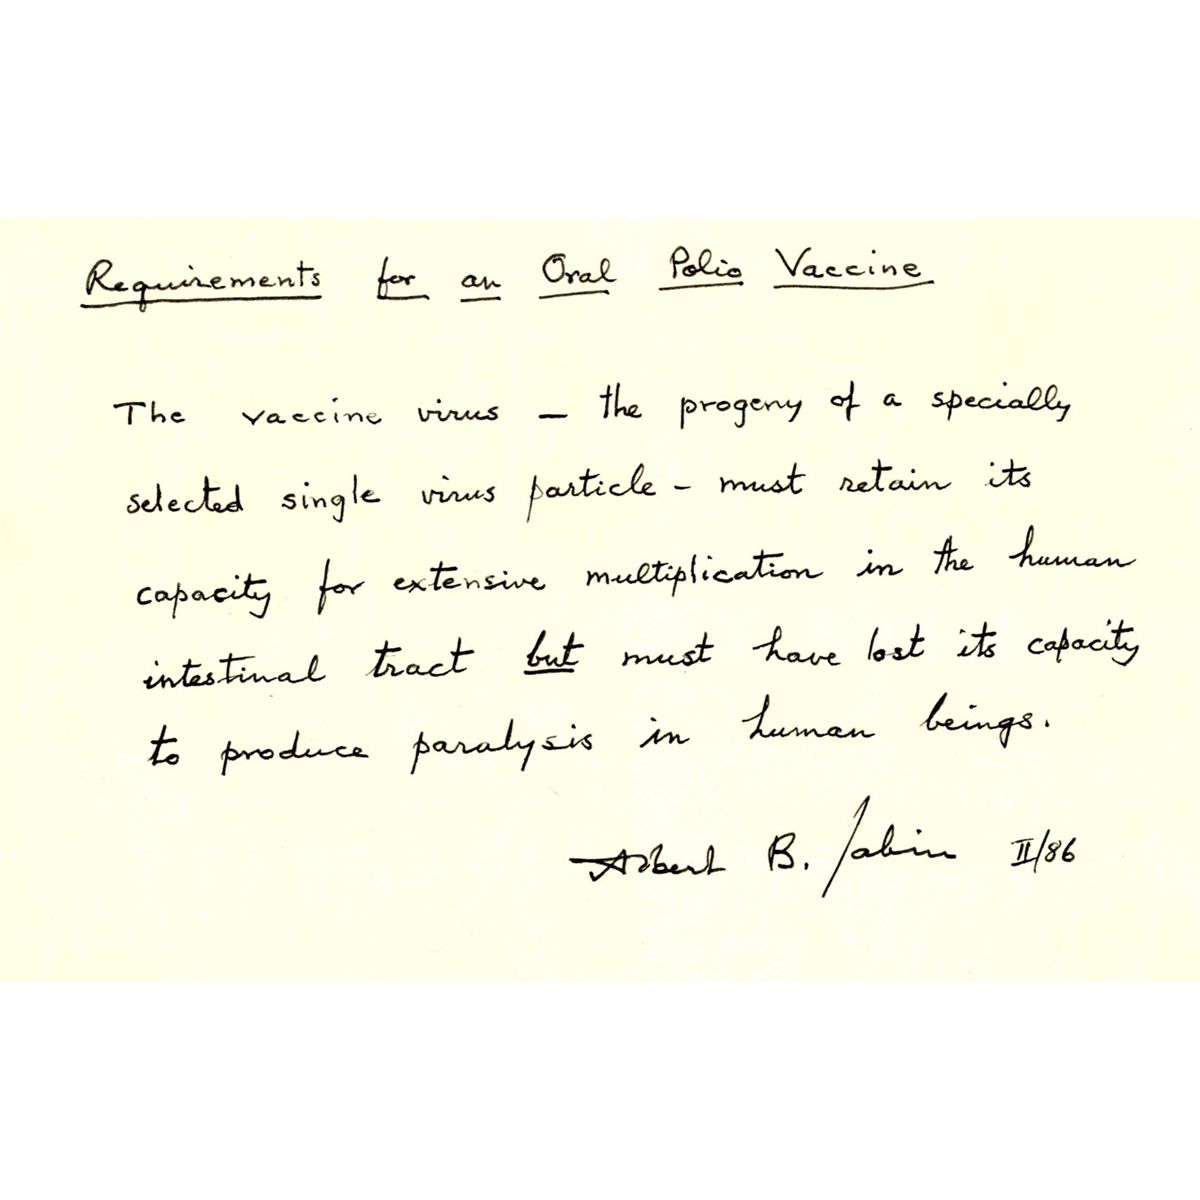 Requirements for an Oral Polio Vaccine
The vaccine virus — the progeny of a specially
selected single virus particle - must retain its
capacity for extensive multiplication in the human
intestinal tract but must have lost its capacity
to produce paralysis in human beings.
Albert B. Sabin II/86